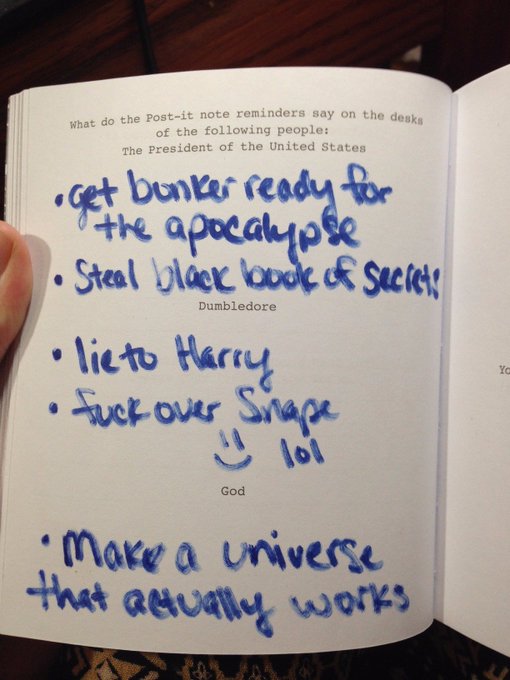 What do the Post-it note reminders say on the desks
of the following people:
The President of the United States
• get bunker ready for
the apocalypse
• Steal black book of secrets
Dumbledore
• lie to Harry
• fuck over Snape
lol
God
• Make a universe
that actually works
Yo